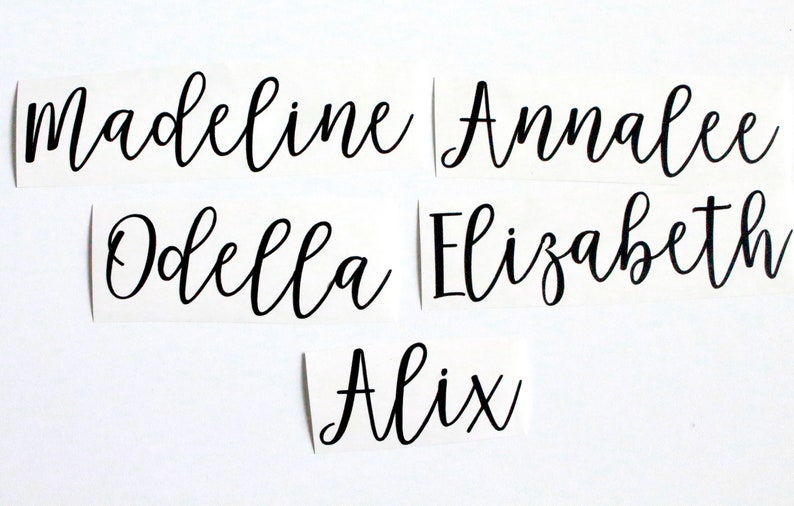 Madeline Annalee
Odella Elizabeth
Alix